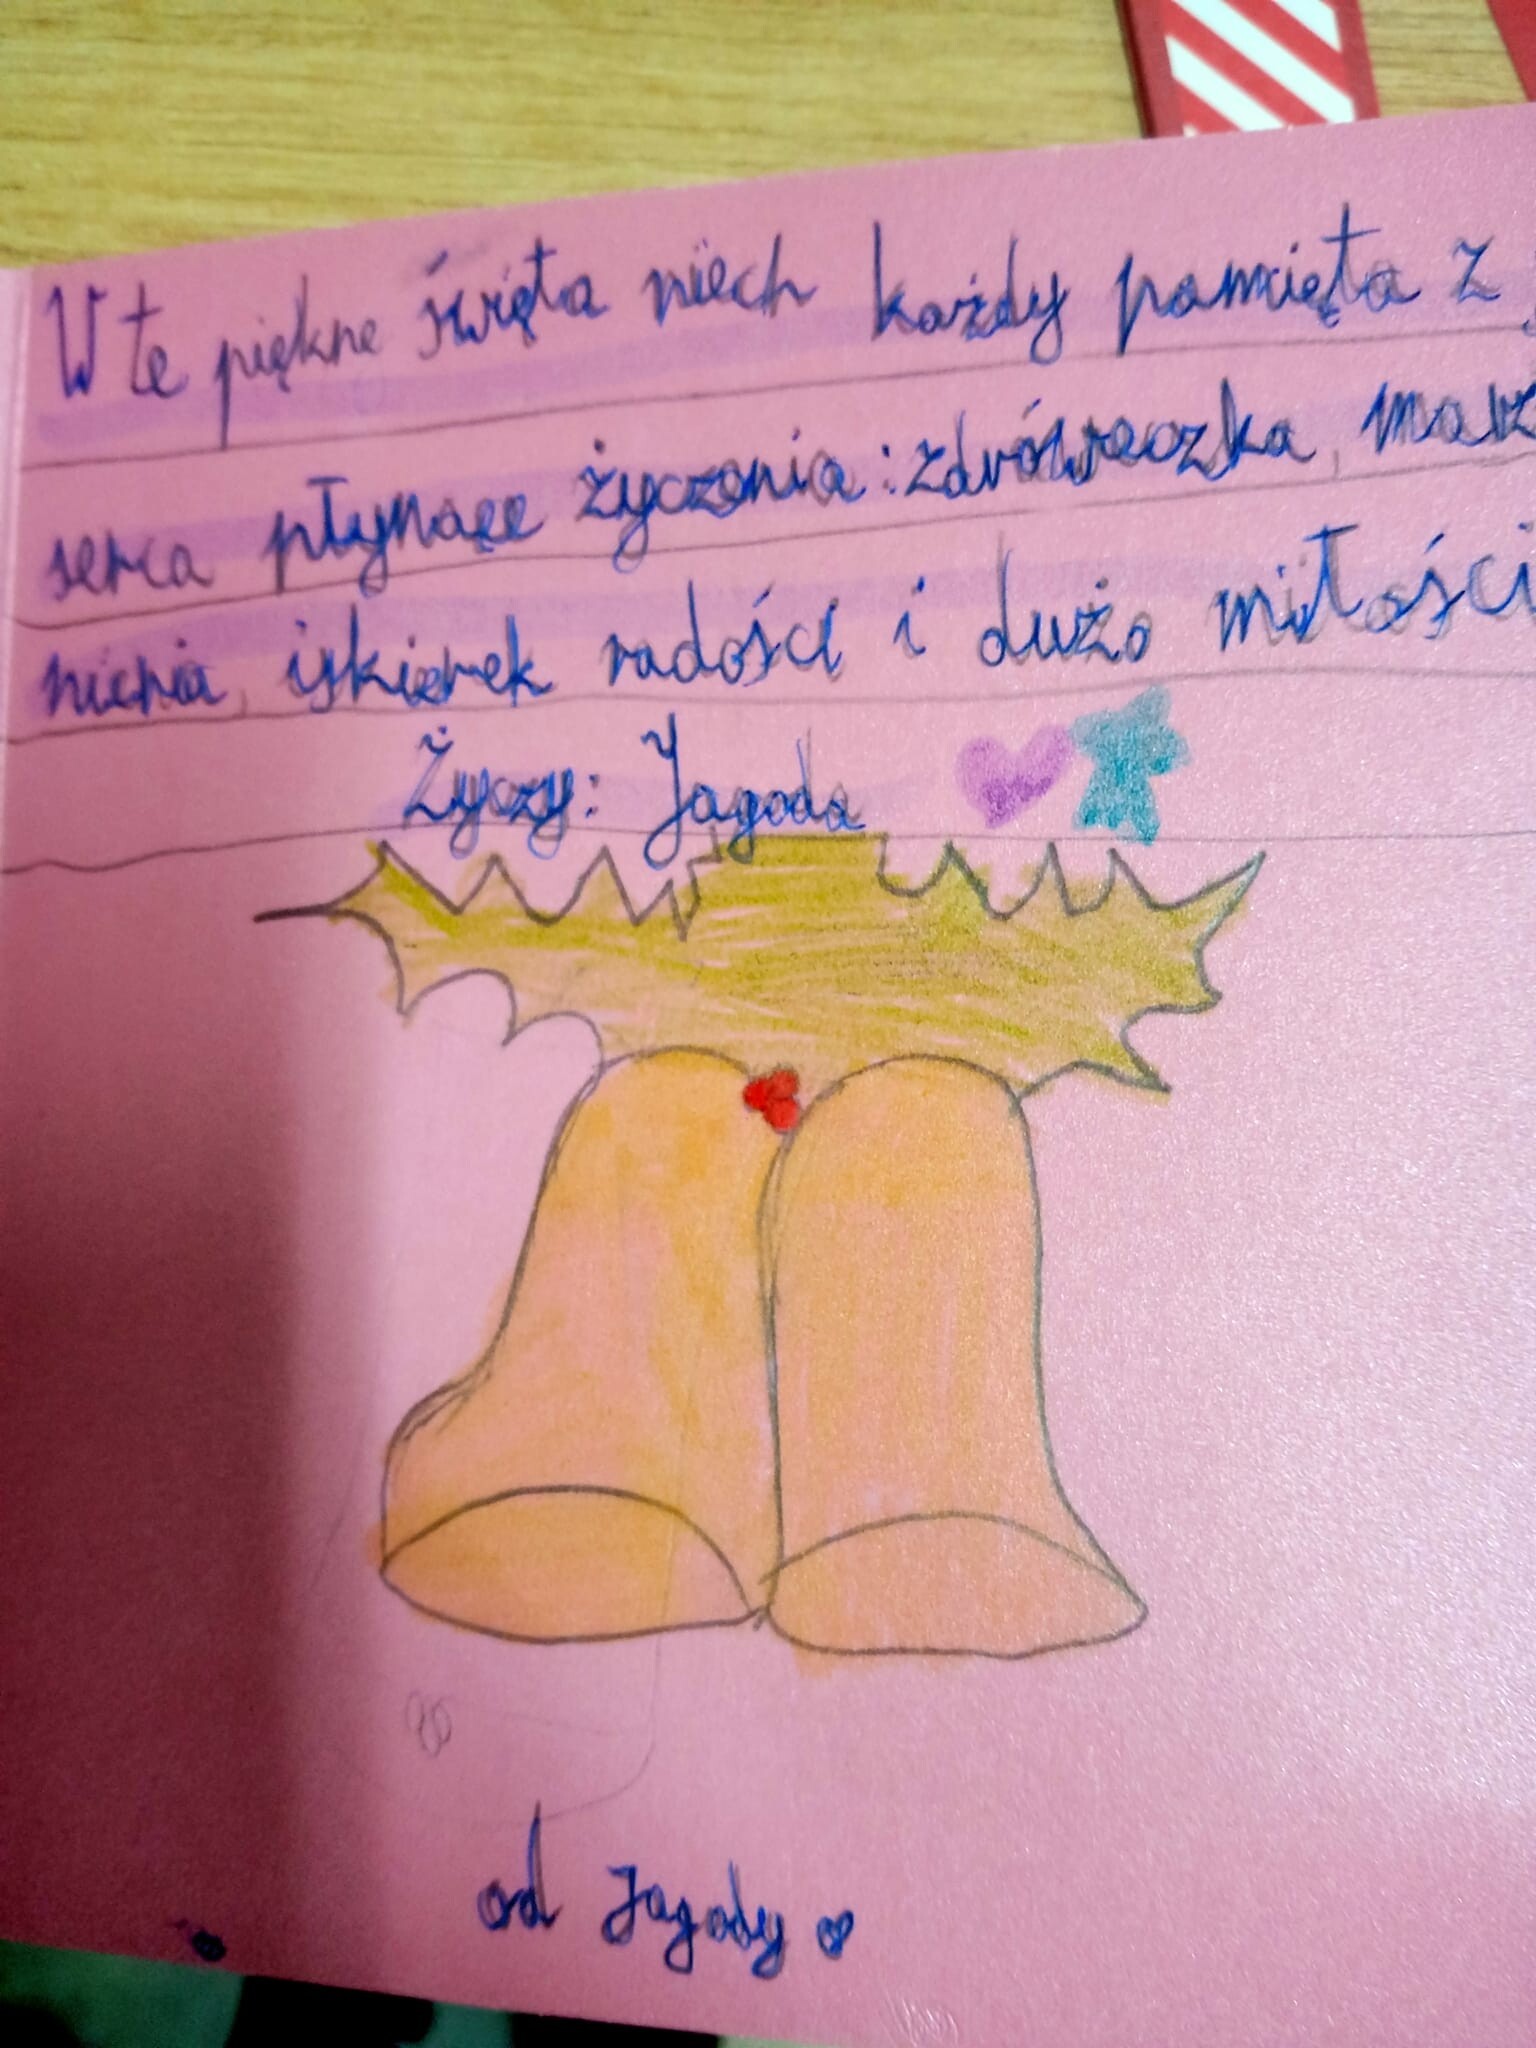 W te piękne święta niech każdy pamięta z
serca płynące życzenia: zdróweczka, marz
nienia, iskierek radości i dużo miłości
Życzy: Jagoda
od Jagody